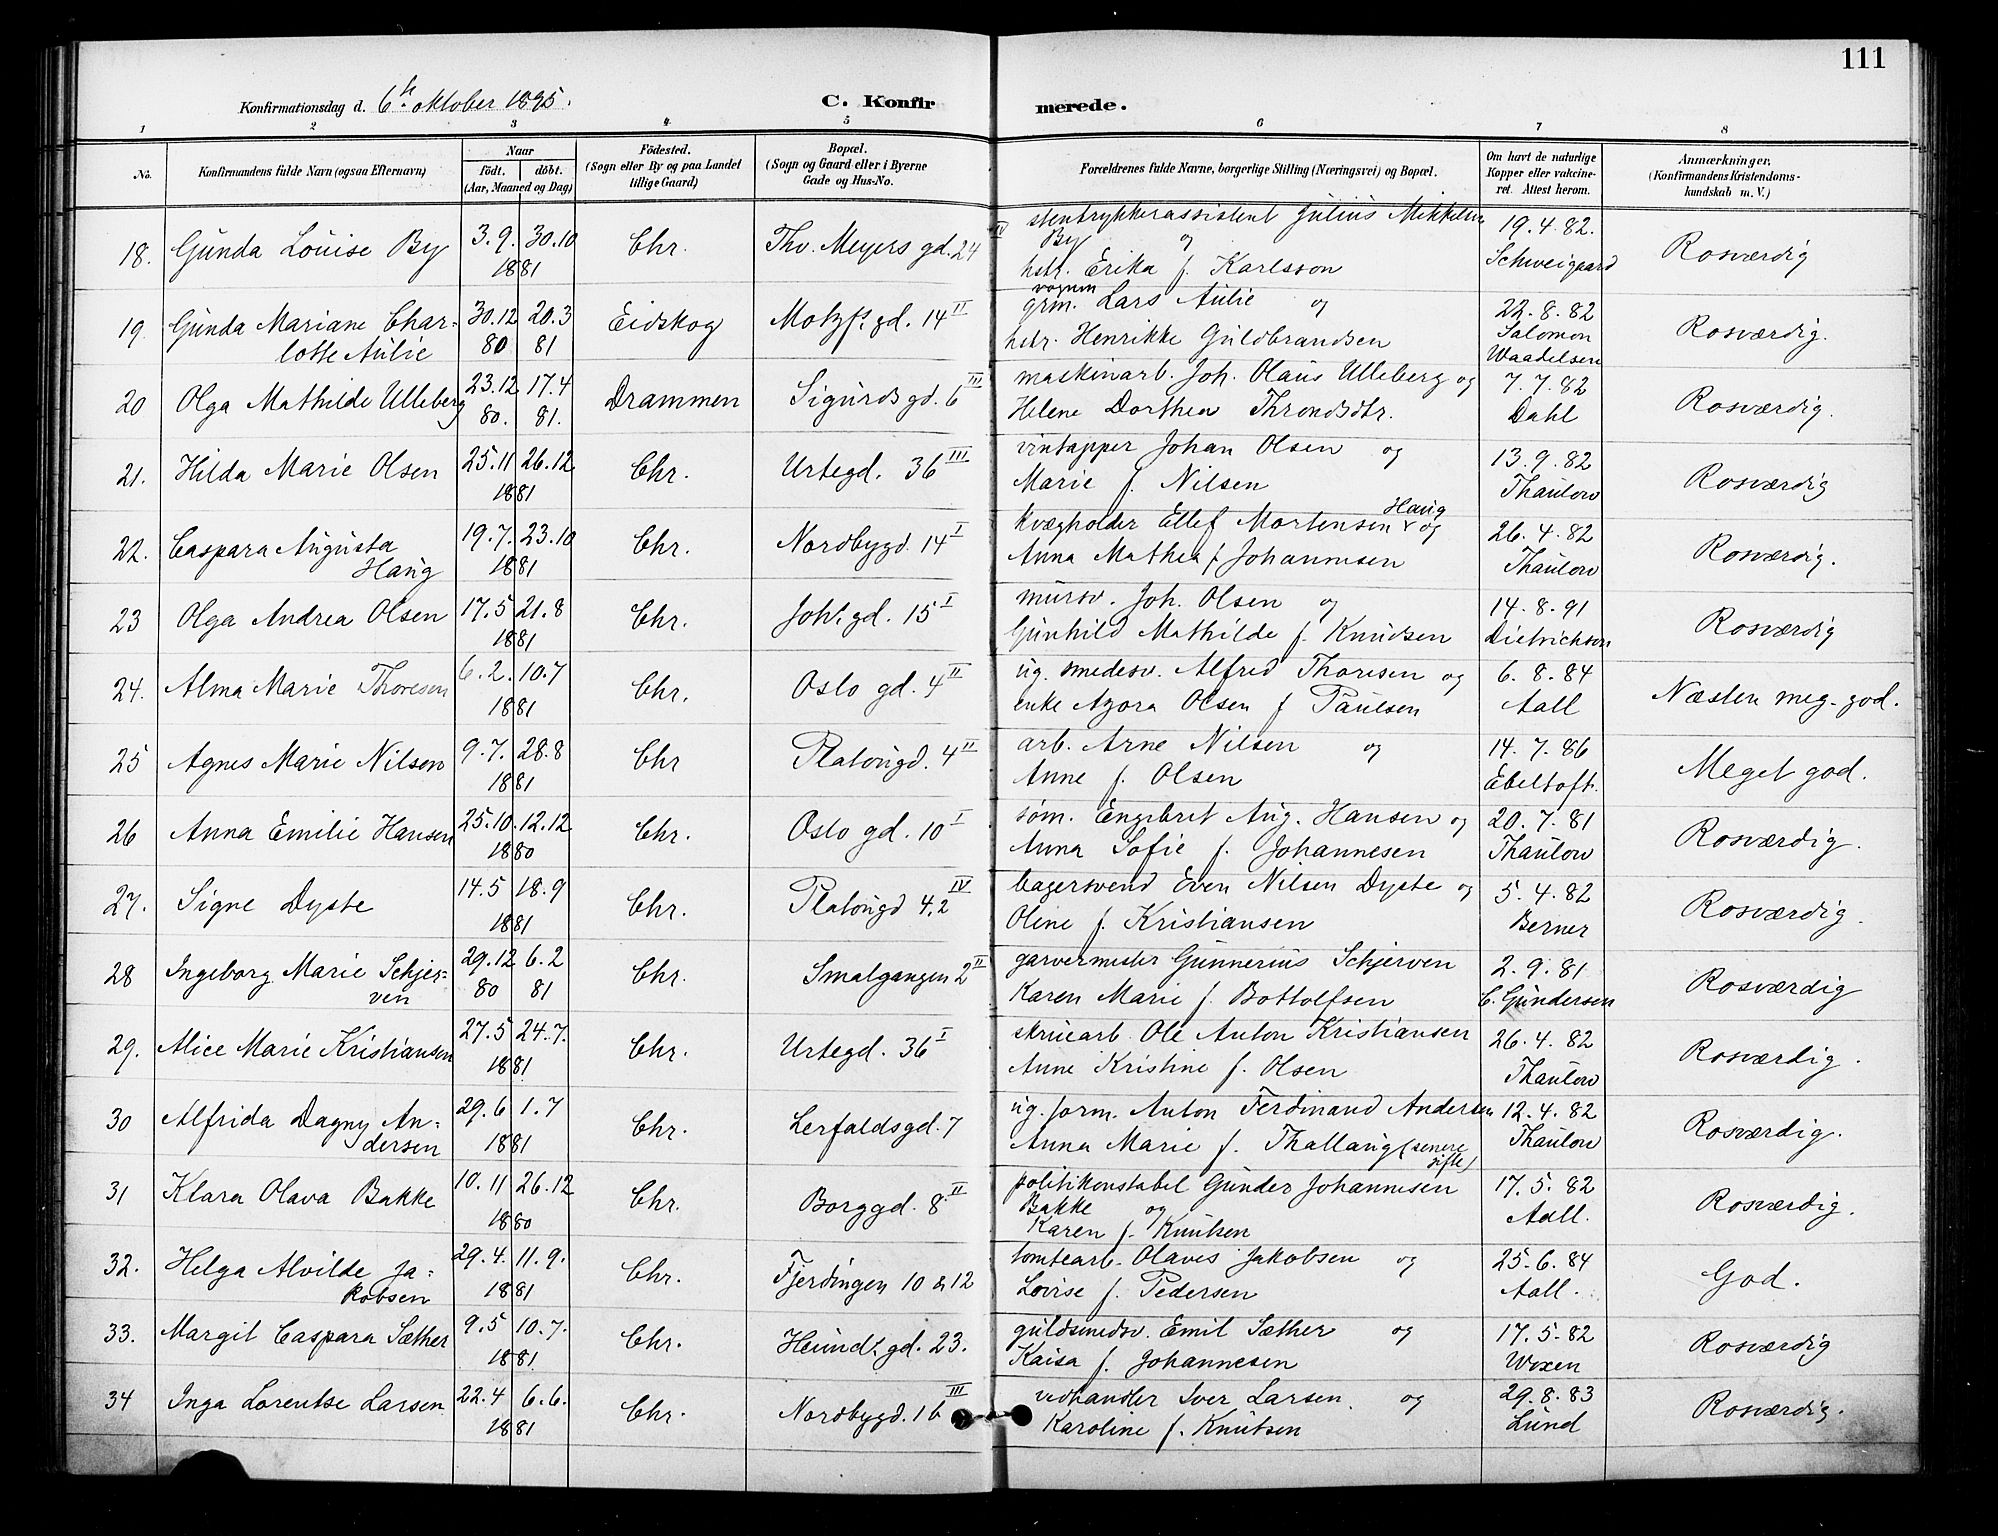 111
Konfirmationsdag d. 6te oktober 1895.
C. Konfirmerede.
1 2 3 4 5 6 7 8
No.
Konfirmandens fulde Navn (ogsaa Efternavn)
Naar
født. døbt.
(Aar, Maaned og Dag)
Fødested.
(Sogn eller By og paa Landet
tillige Gaard)
Bopæl.
(Sogn og Gaard eller i Byerne
Gade og Hus-No.
Forældrenes fulde Navne, borgerlige Stilling (Næringsvei) og Bopæl.
Om havt de naturlige
Kopper eller vakcine-
ret. Attest herom.
Anmærkninger.
(Konfirmandens Kristendoms-
kundskab m. V.)
18. Gunda Louise By 3.9. 30.10 1881 Chr. Thv. Meyers gd. 24 IV
stentrykkerassistent Julius Mikkelsen
By og
hstr. Erika f. Karlsson
19.4.82. Schweigaard Rosværdig
19. Gunda Mariane Char-
lotte Aulie 30.12 80 20.3 81 Eidskog Motzf. gd. 14 II
vognm
grm. Lars Aulie og
hstr. Henrikke Guldbrandsen
22.8.82 Salomon Waadelsen Rosværdig.
20 Olga Mathilde Ulleberg 23.12 80. 17.4 81. Drammen Sigurds gd. 6 III
maskinarb. Joh. Olaus Ulleberg og
Helene Dorthea Throndsdtr.
7.7.82 Dahl Rosværdig.
21. Hilda Marie Olsen 25.11 26.12 1881 Chr. Urtegd. 36 III
vintapper Johan Olsen og
Marie f. Nilsen
13.9.82 Thaulow Rosværdig
22. Caspara Augusta
Haug 19.7. 23.10 1881 Chr. Nordbygd. 14 I
Haug
Kvægholder Ellef Mortensen v og
Anna Mathea f Johannesen
26.4.82 Thaulow Rosværdig.
23 Olga Andrea Olsen 17.5 21.8 1881 Chr. Joh. gd. 15 I
mursv. Joh. Olsen og
Gunhild Mathilde f. Knudsen
14.8.91 Dietrichson Rosværdig
24. Alma Marie Thoresen 6.2. 10.7 1881 Chr. Oslo gd. 4 II
ug. smedesv. Alfred Thoresen og
enke Azora Olsen f Paulsen
6.8.84 Aall Næsten meg. god.
25 Agnes Marie Nilsen 9.7. 28.8 1881 Chr Platougd. 4 II
arb. Arne Nilsen og
Anne f. Olsen
14.7.86 Ebeltoft. Meget god.
26 Anna Emilie Hansen 25.10. 12.12 1880 Chr. Oslo gd. 10 I
søm. Engebret Aug. Hansen og
Anna Sofie f. Johannesen
20.7.81 Thaulow Rosværdig.
27. Signe Dyste 14.5 18.9 1881 Chr. Platougd 4,2 IV
bagersvend Even Nilsen Dyste og
Oline f. Kristiansen
5.4.82 Berner Rosværdig.
28 Ingeborg Marie Schjer-
ven 29.12 80 6.2 81 Chr. Smalgangen 2 II
garvermester Gunnerius Schjerven
Karen Marie f. Bottolfsen
2.9.81 C. Gundersen Rosværdig
29. Alice Marie Kristiansen 27.5 24.7. 1881 Chr. Urtegd. 36 I
skruearb. Ole Anton Kristiansen
Anne Kristine f. Olsen
26.4.82 Thaulow Rosværdig.
30 Alfrida Dagny An-
dersen 29.6 1.7 1881 Chr. Lerfaldsgd. 7
ug. form. Anton Ferdinand Andersen
Anna Marie f. Thallaug (senere
gifte)
12.4.82 Thaulow Rosværdig.
31 Klara Olava Bakke 10.11 26.12 1880 Chr. Borggd. 8 II
politikonstabel Gunder Johannesen
Bakke og
Karen f. Knutsen
17.5.82 Aall. Rosværdig.
32. Helga Alvilde Ja-
kobsen 29.4. 11.9. 1881 Chr. Fjerdingen 10 & 12
tomtearb. Olaves Jakobsen og
Lovise f. Pedersen
25.6.84 Aall. God.
33. Margit Caspara Sæther 9.5 10.7. 1881 Chr. Heimd. gd. 23.
guldsmedsv. Emil Sæther og
Kaisa f. Johannesen
17.5.82 Woxen Rosværdig
34 Inga Lorentse Larsen 22.4 6.6. 1881 Chr. Nordbygd. 16 III
vedhandler Iver Larsen og
Karoline f. Knutsen
29.8.83 Lund Rosværdig.